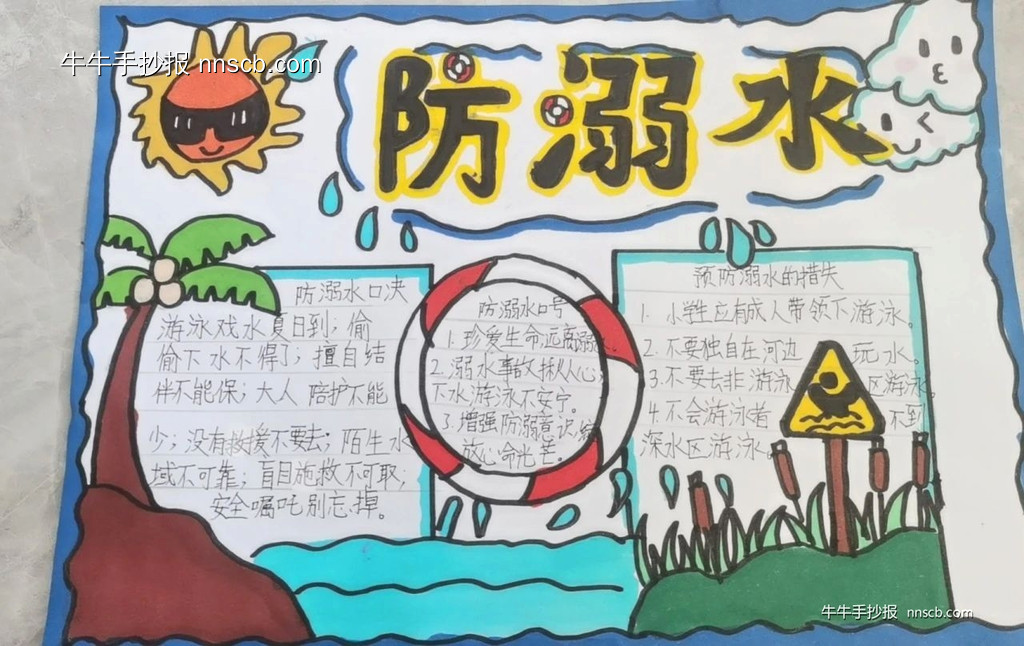 牛牛手抄报 nnscb.com
防溺水
防溺水口决
游泳戏水夏日到；偷
偷下水不得了；擅自结
伴不能保；大人陪护不能
少；没有救援不要去；陌生水
域不可靠；盲目施救不可取，
安全嘱吒别忘掉。
防溺水口号
1. 珍爱生命远离溺
2. 溺水事故揪人心；
下水游泳不安宁。
3. 增强防溺意识，
命光芒。
预防溺水的措失
1. 小学生应有成人带领下游泳。
2. 不要独自在河边 玩水。
3. 不要去非游泳 区游泳
4. 不会游泳者 不到
深水区游泳。
牛牛手抄报 nnscb.com